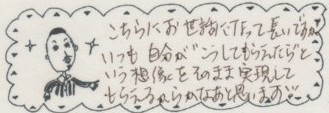 こちらにお世話になって長いですが
いつも自分が"こうしてもらえたら"と
いう想像をそのまま実現して
もらえるからかなあと思います